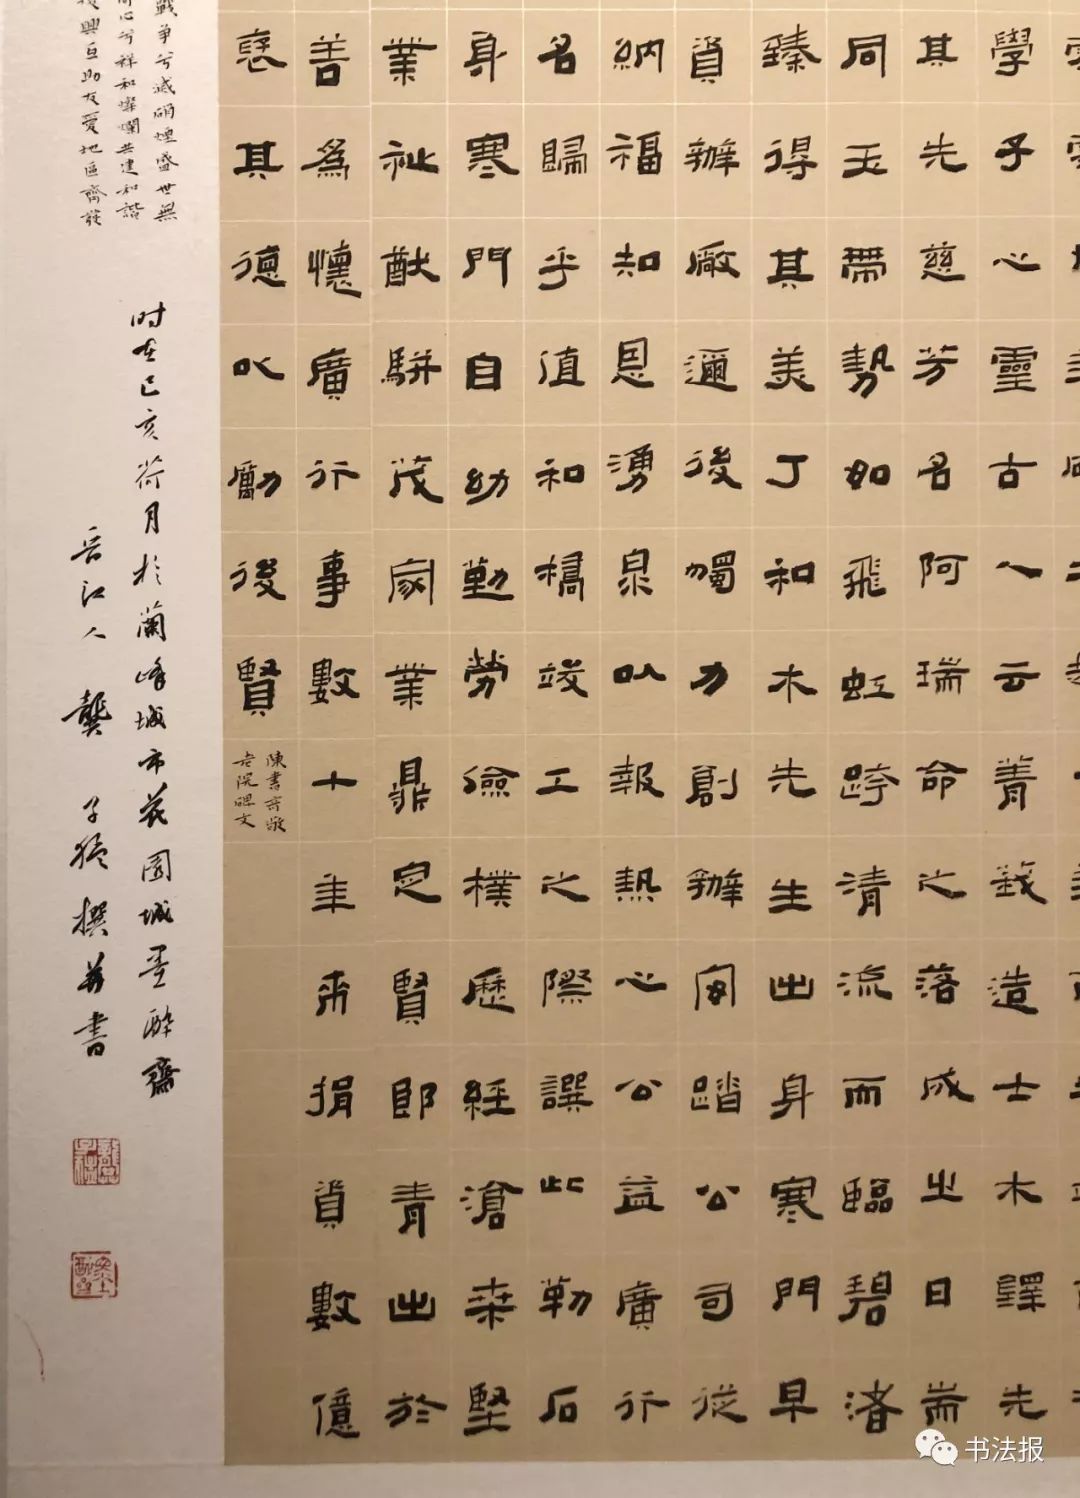 學子心靈古人云菁莪造士木鐸先
其先慈芳名阿瑞命之落成日出耑
同玉帶勢如飛虹跨清流而臨碧渚
臻得其美丁木和木先生出身寒門早
資辦廠邇後獨力創辦窗踏公司從
納福知恩湧泉以報熱心公益廣行
名歸乎值和橋竣工之際譔此勒石
身寒門自幼勤勞儉樸歷經滄桑堅
業祉猷駢茂家業鼎定賢郎青出於
善為懷廣行事數十年來捐資數億
褒其德以勵後賢
陳書齋敬
戰爭兮滅硝煙盛世無
兮祥和燦爛共建和諧
興互助友愛地區齊發
时在己亥荷月於蘭峰城市花園城墨醉齋
晋江人龔子猛撰并書
书法报